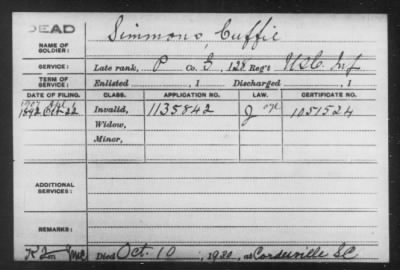 DEAD
NAME OF SOLDIER: Simmons, Cuffie
SERVICE: Late rank, P Co. G, 128 Reg't U.S.C. Inf
TERM OF SERVICE: Enlisted , 1 Discharged , 1
DATE OF FILING. CLASS. APPLICATION NO. LAW. CERTIFICATE NO.
1892 Oct 22 Invalid, 1135842 1051524
Widow,
Minor,
ADDITIONAL SERVICES:
REMARKS:
Died Oct. 10, 1920, at Cordesville SC